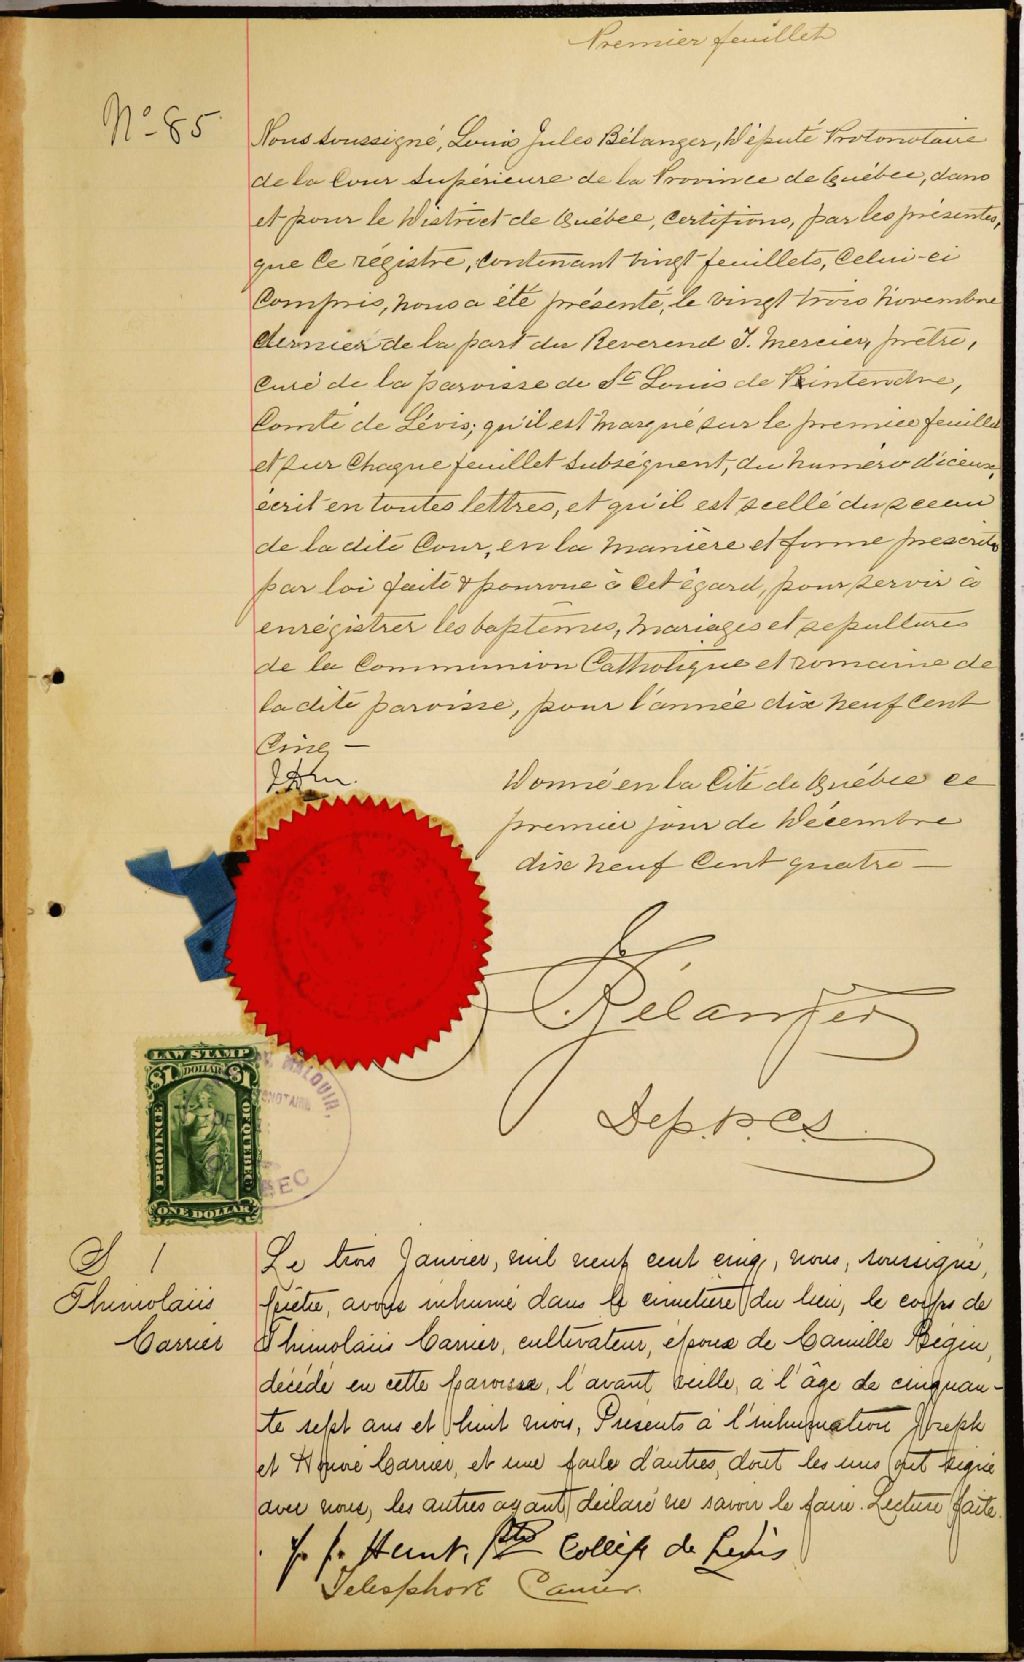 Premier feuillet
No 85
Nous soussigné, Louis Jules Bélanger, Député Protonotaire
de la Cour Supérieure de la Province de Québec, dans
et pour le District de Québec, certifions, par les présentes,
que ce régistre, contenant vingt feuillets, celui-ci
compris, nous a été présenté, le vingt trois Novembre
dernier de la part du Reverend J. Mercier, prêtre,
curé de la paroisse de St Louis de Pintendre,
Comté de Lévis; qu'il est marqué sur le premier feuillet
et sur chaque feuillet subséquent, du numéro d'iceux,
écrit en toutes lettres, et qu'il est scellé du sceau
de la dite Cour, en la manière et forme prescrite
par loi faite & pourvue à cet égard, pour servir à
enrégistrer les baptêmes, mariages et sepultures
de la Communion Catholique et romaine de
la dite paroisse, pour l'année dix neuf cent
cinq —
Donné en la Cité de Québec ce
premier jour de Décembre
dix neuf cent quatre —
QUEBEC
Bélanger
Dep. P. C. S.
LAW STAMP
$1 DOLLAR $1
PROVINCE
OF QUEBEC
ONE DOLLAR
MALOUIN,
S 1
Thimolaüs
Carrier
Le trois Janvier, mil neuf cent cinq, nous, soussigné,
prêtre, avons inhumé dans le cimetière du lieu, le corps de
Thimolaüs Carrier, cultivateur, époux de Camille Bégin,
décédé en cette paroisse, l'avant veille, a l'âge de cinquan-
te sept ans et huit mois, Présents à l'inhumation Joseph
et Honoré Carrier, et une foule d'autres, dont les uns ont signé
avec nous, les autres ayant déclaré ne savoir le faire. Lecture faite.
J. J. Hunt, Ptre Collège de Lévis
Telesphore Carrier.